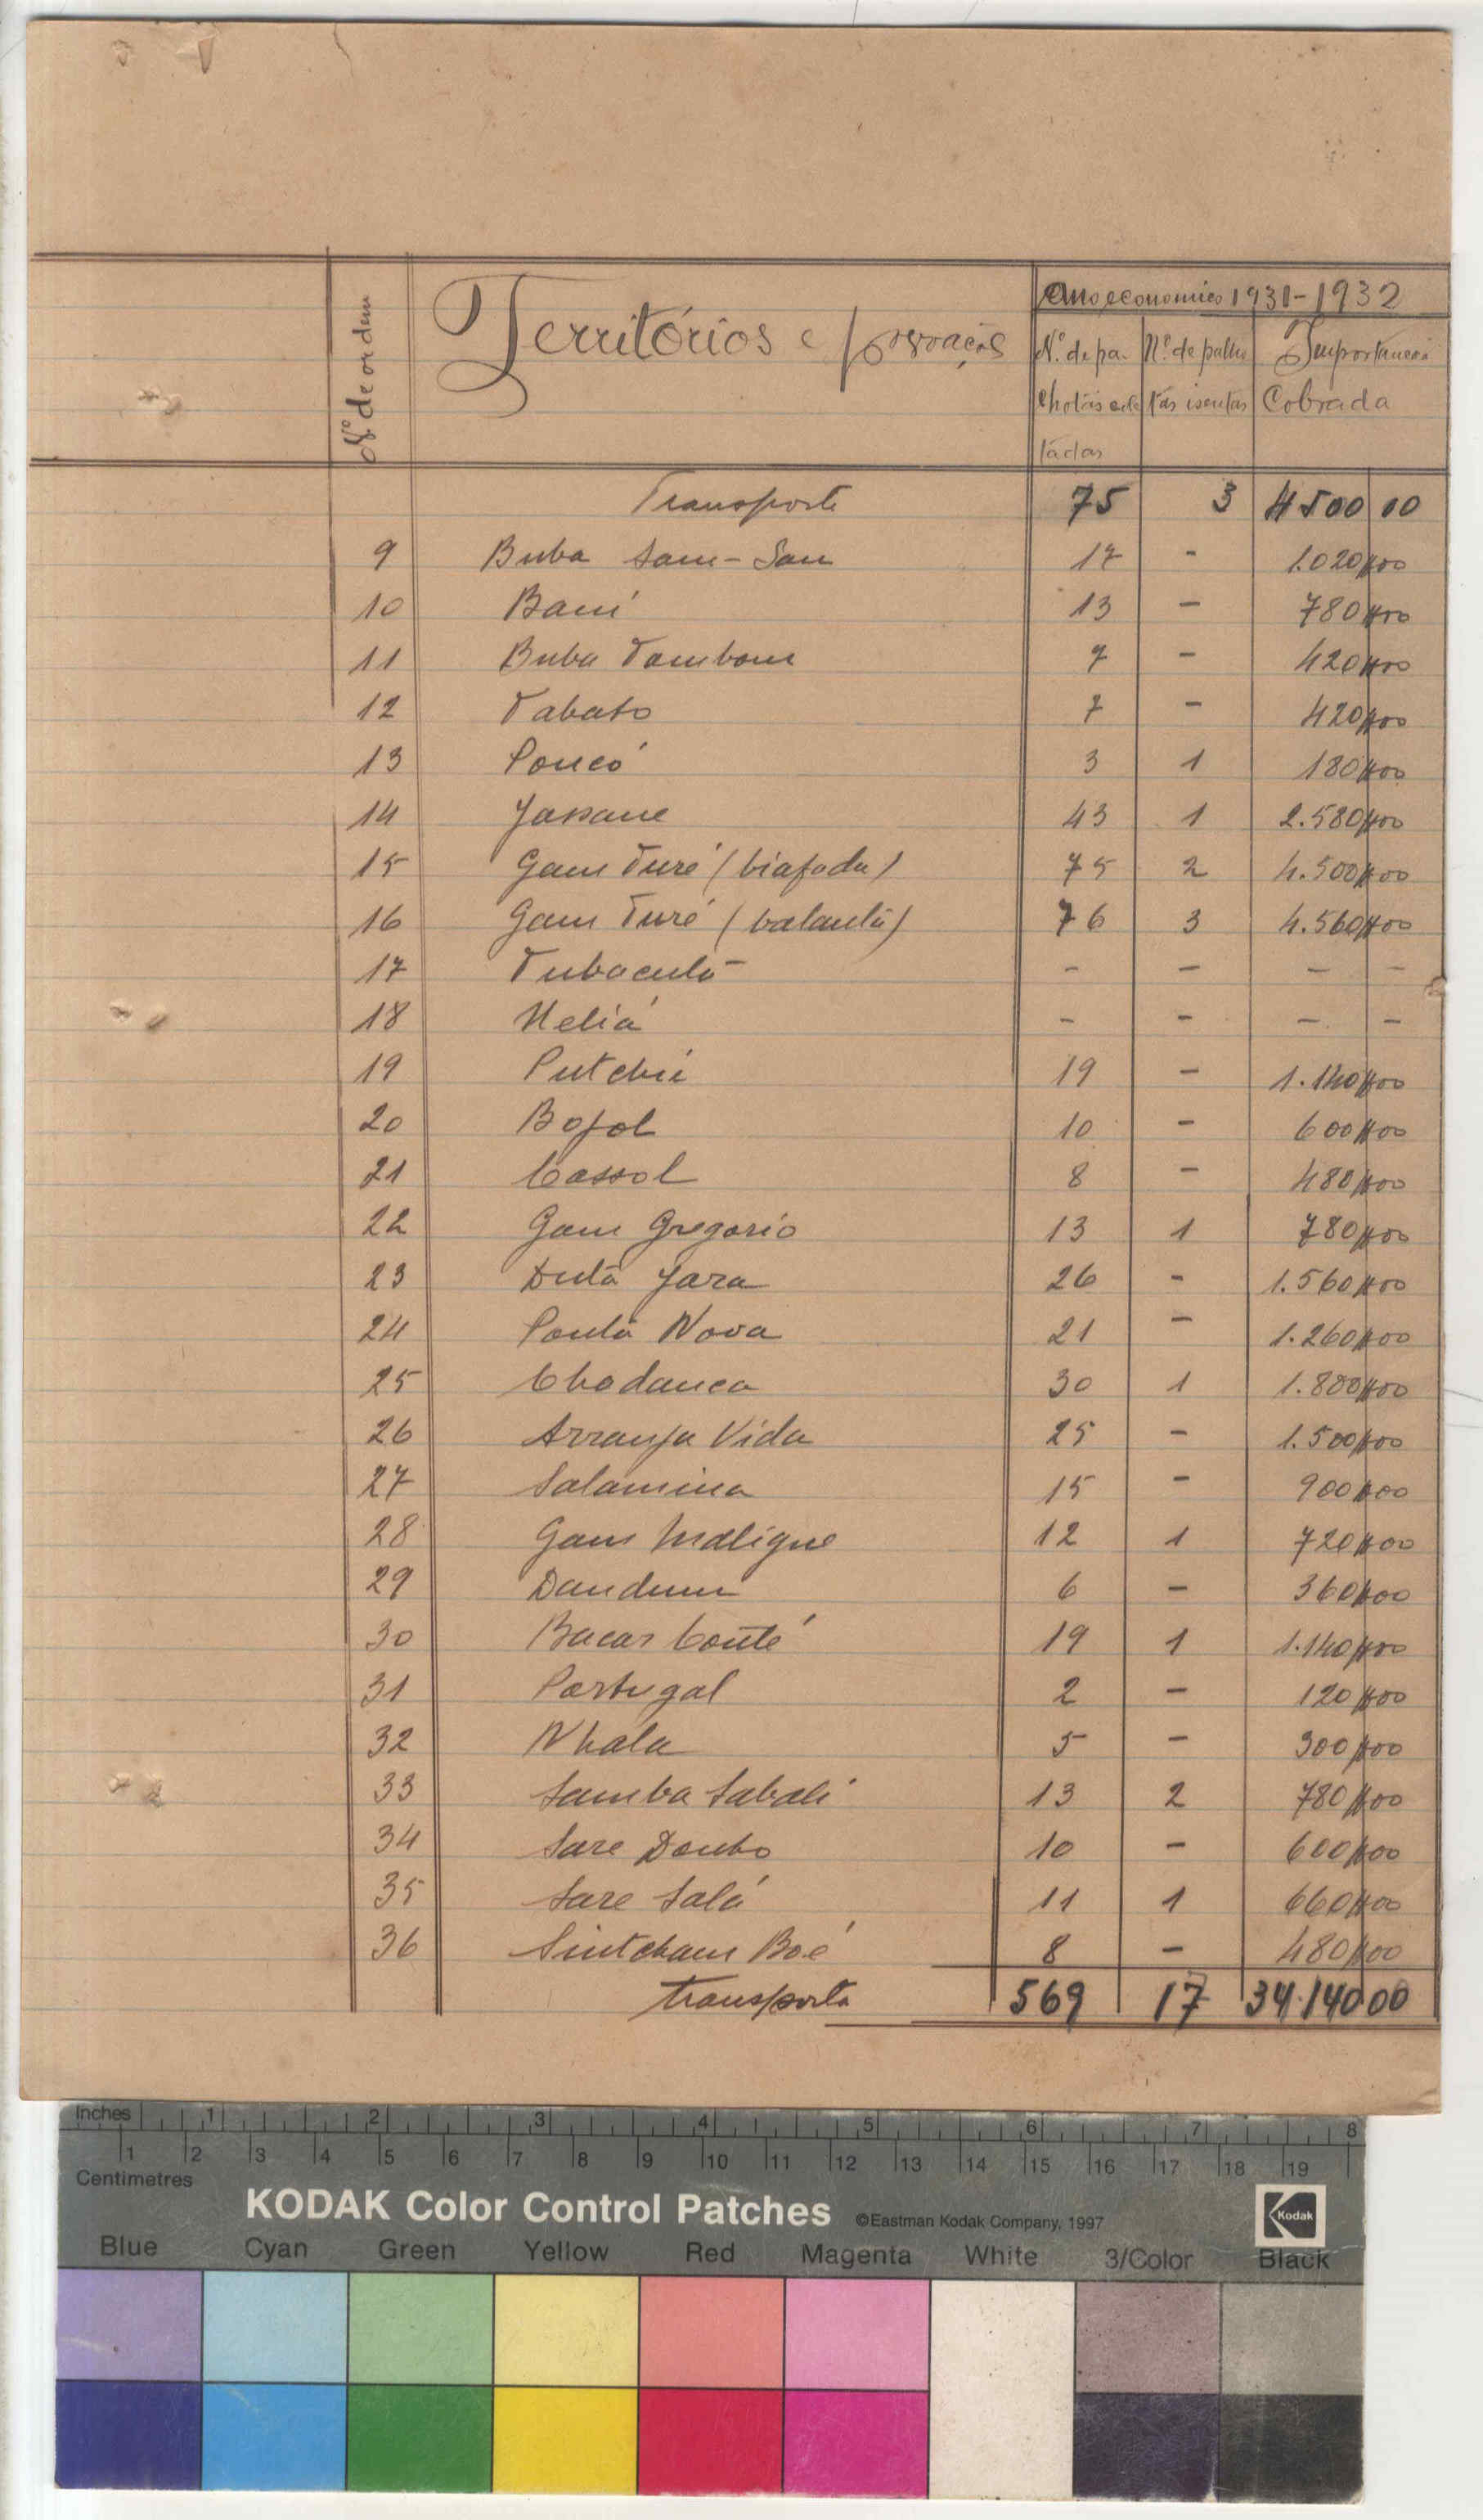 Nº de ordem
Territórios e povoações
Ano economico 1931-1932
Nº de palhotas colectadas
Nº de palhotas isentas
Importancia Cobrada
Transporte 75 3 4500 00
9 Buba Sam-San 17 - 1.020$00
10 Bani 13 - 780$00
11 Buba Tombom 7 - 420$00
12 Tabato 7 - 420$00
13 Poncó 3 1 180$00
14 Jassane 43 1 2.580$00
15 Gam Turé (biafada) 75 2 4.500$00
16 Gam Turé (balanta) 76 3 4.560$00
17 Tubacutá - - - -
18 Heliá - - - -
19 Putchi 19 - 1.140$00
20 Bofol 10 - 600$00
21 Cassol 8 - 480$00
22 Gam Gregorio 13 1 780$00
23 Dutá Jara 26 - 1.560$00
24 Ponta Nova 21 - 1.260$00
25 Chodanca 30 1 1.800$00
26 Arranja Vida 25 - 1.500$00
27 Salamina 15 - 900$00
28 Gam 12 1 720$00
29 Dandum 6 - 360$00
30 Bacar Conté 19 1 1.140$00
31 Portugal 2 - 120$00
32 Nhala 5 - 300$00
33 Samba Sabali 13 2 780$00
34 Sare Donho 10 - 600$00
35 Sare Salá 11 1 660$00
36 Sintcham Boé 8 - 480$00
Transporta 569 17 34.140 00
Inches 1 2 3 4 5 6 7 8
1 2 3 4 5 6 7 8 9 10 11 12 13 14 15 16 17 18 19
Centimetres
KODAK Color Control Patches ©Eastman Kodak Company, 1997 Kodak
Blue Cyan Green Yellow Red Magenta White 3/Color Black